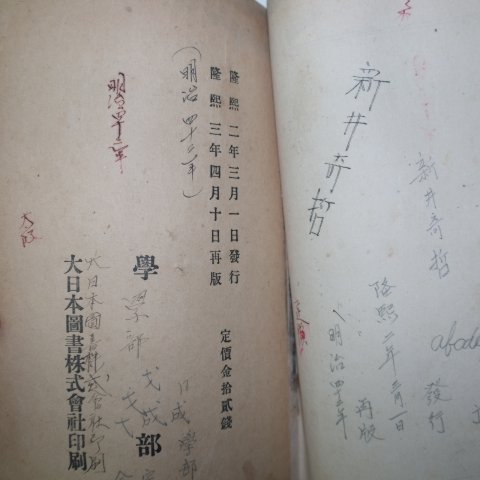 新井奇哲
新井奇哲
隆熙二年三月一日
發行
再版
(明治四十二年
abcde
隆熙二年三月一日發行
隆熙三年四月十日再版
(明治四十二年)
明治四十二年
定價金拾貳錢
學部
學部
大日本圖書株式會社印刷
大日本圖書株式會社印刷